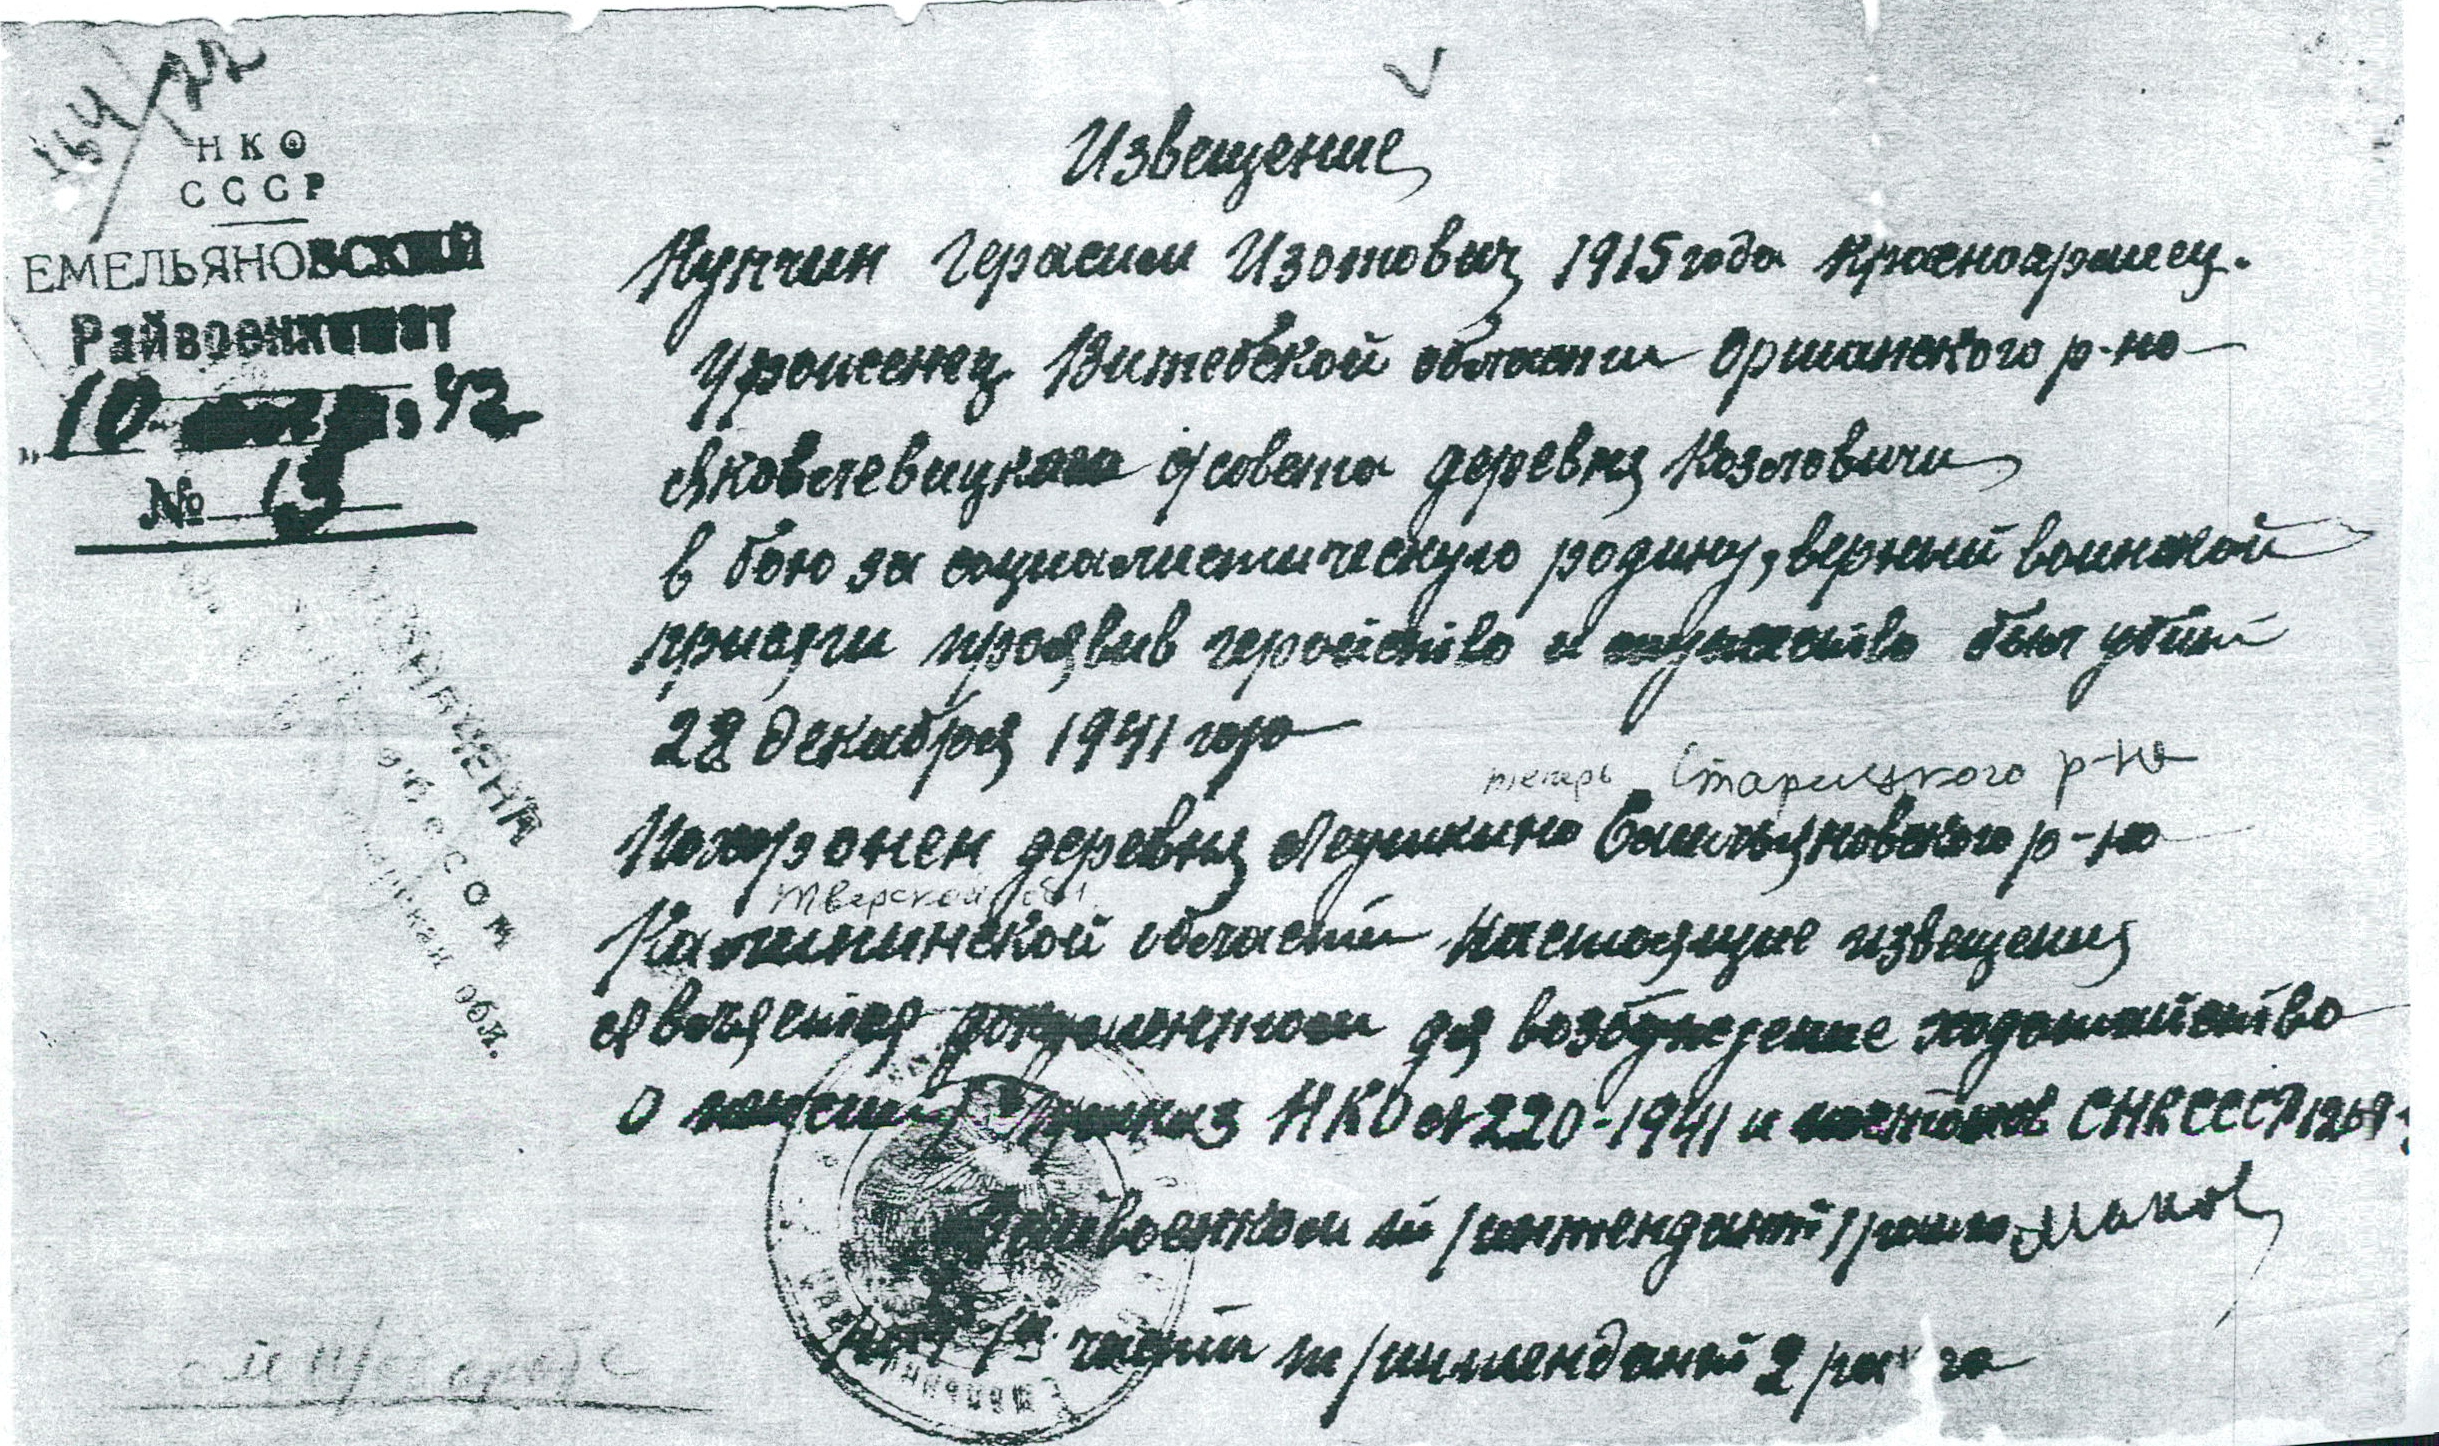 164/22
НКО
СССР
ЕМЕЛЬЯНОВСКИЙ
Райвоенкомат
"10 42
№ 13
Извещение
Купчин Герасим Изотович 1915 года Красноармеец.
Уроженец Витебской области Оршанского р-на
Яковлевицкого с/совета деревня Козловичи
в бою за социалистическую родину, верный воинской
присяги проявив геройство и мужество был убит
28 декабря 1941 года
теперь Старицкого р-на
Похоронен деревня Лединкино Емельяновского р-на
Тверской обл.
Калининской области настоящие извещения
является документом для возбуждение ходатайство
о пенсии приказ НКО № 220-1941 и СНК СССР 1269
Райвоенком интендант ранга
части интендант 2 ранга
НАЗНАЧЕНА
обл.